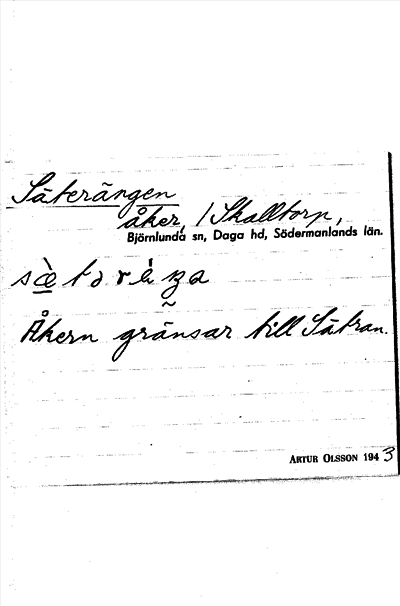 Säterängen
åker, / Skalltorp,
Björnlunda sn, Daga hd, Södermanlands län.
Åkern gränsar till Sätran.
ARTUR OLSSON 1943